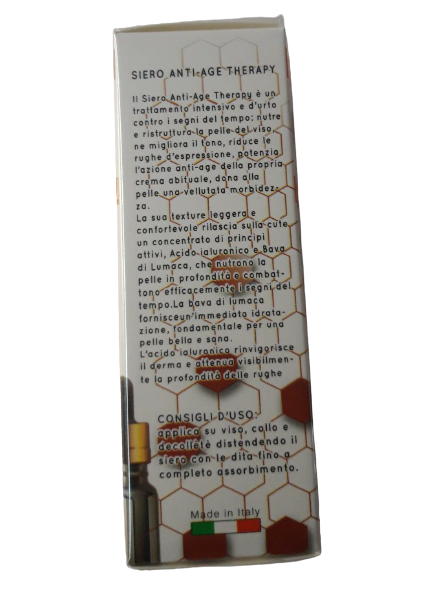 SIERO ANTI-AGE THERAPY
Il Siero Anti-Age Therapy è un
trattamento intensivo e d'urto
contro i segni del tempo: nutre
e ristruttura la pelle del viso,
ne migliora il tono, riduce le
rughe d'espressione, potenzia
l'azione anti-age della propria
crema abituale, dona alla
pelle una vellutata morbidez-
za.
La sua texture leggera e
confortevole rilascia sulla cute
un concentrato di principi
attivi, Acido ialuronico e Bava
di Lumaca, che nutrono la
pelle in profondità e combat-
tono efficacemente i segni del
tempo.La bava di lumaca
fornisceun'immediata idrata-
zione, fondamentale per una
pelle bella e sana.
L'acido ialuronico rinvigorisce
il derma e attenua visibilmen-
te la profondità delle rughe
CONSIGLI D'USO:
applica su viso, collo e
decolletè distendendo il
siero con le dita fino a
completo assorbimento.
Made in Italy